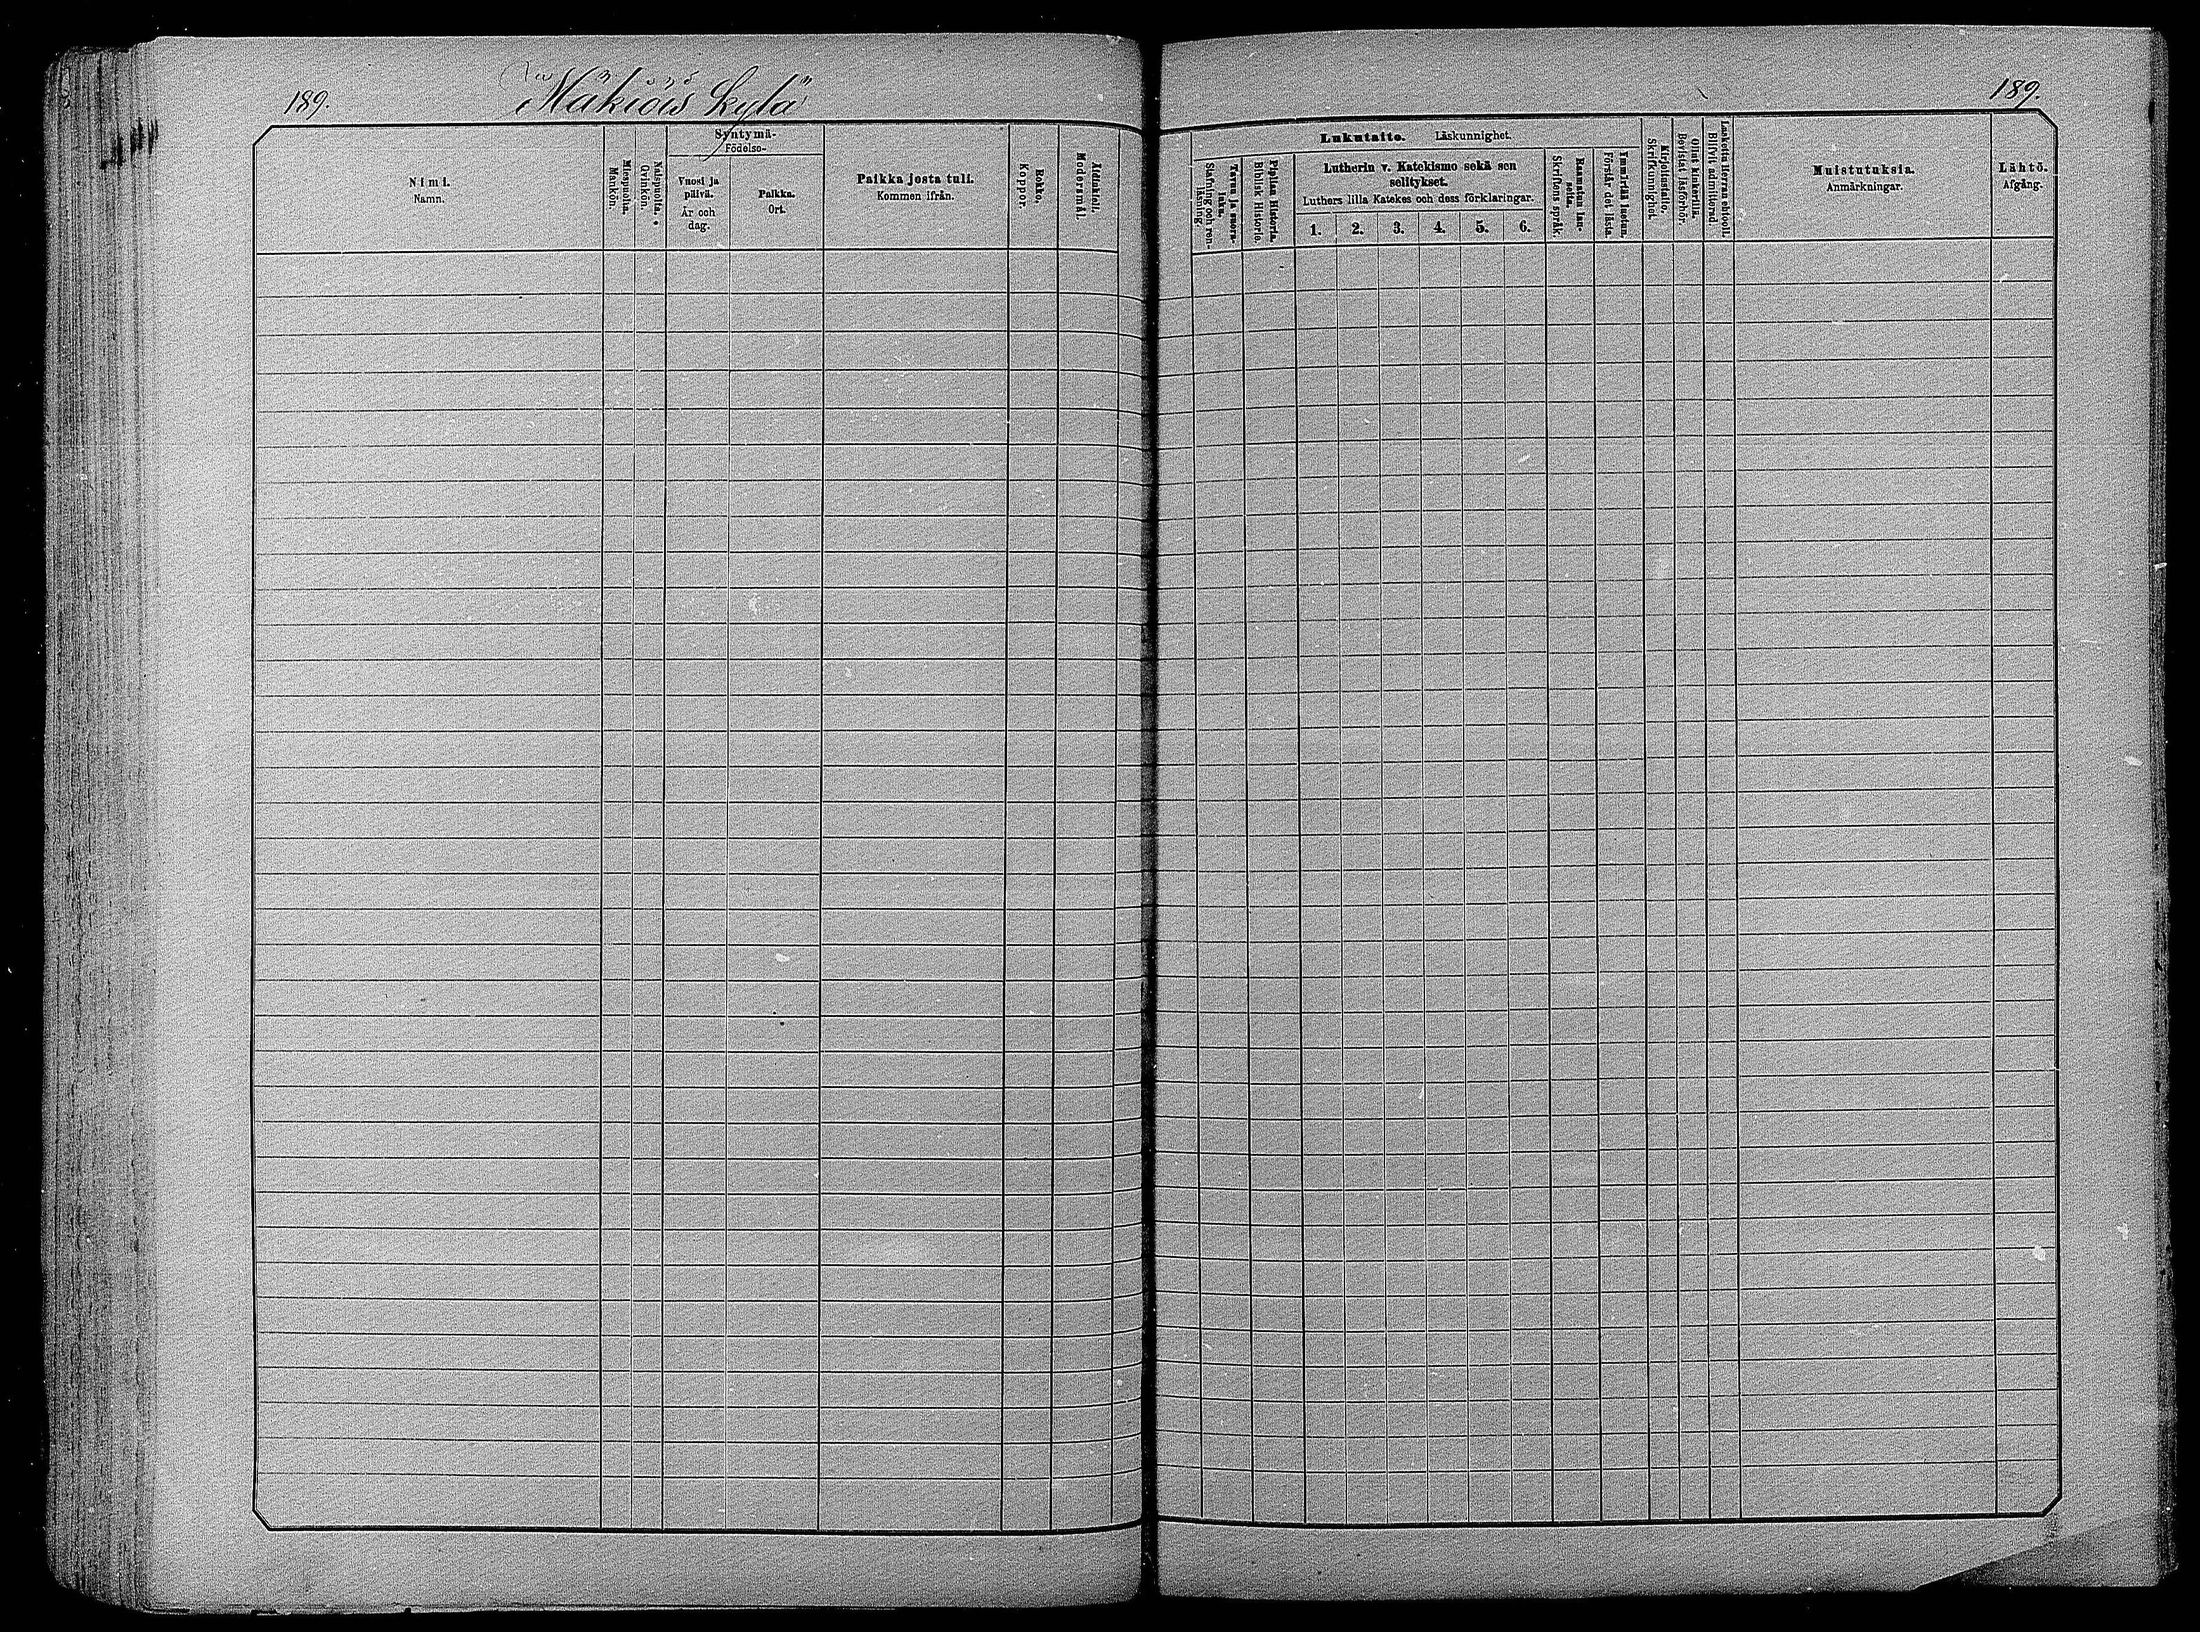 189. Mäkiöis kylä 189.
Nimi.
Namn.
Miespuolia.
Mankön.
Naispuolia.
Qvinkön.
Syntymä-
Födelse-
Vuosi ja
päivä.
År och
dag.
Paikka.
Ort.
Paikka josta tuli.
Kommen ifrån.
Rokko.
Koppor.
Äidinkieli.
Modersmål.
Lukutaito. Läskunnighet.
Tavuu ja suora-
luku.
Stafning och ren-
läsning.
Piplian Historia.
Biblisk Historie.
Lutherin v. Katekismo sekä sen
selitykset.
Luthers lilla Katekes och dess förklaringar.
1. 2. 3. 4. 5. 6.
Raamatun lau-
seita.
Skriftens språk.
Ymmärtää luetun.
Förstår det lästa.
Kirjoitustaito.
Skrifkunnighet.
Ollut kinkerillä.
Bevistat läsförhör.
Laskettu Herran ehtoolle.
Blifvit admitterad.
Muistutuksia.
Anmärkningar.
Lähtö.
Afgång.